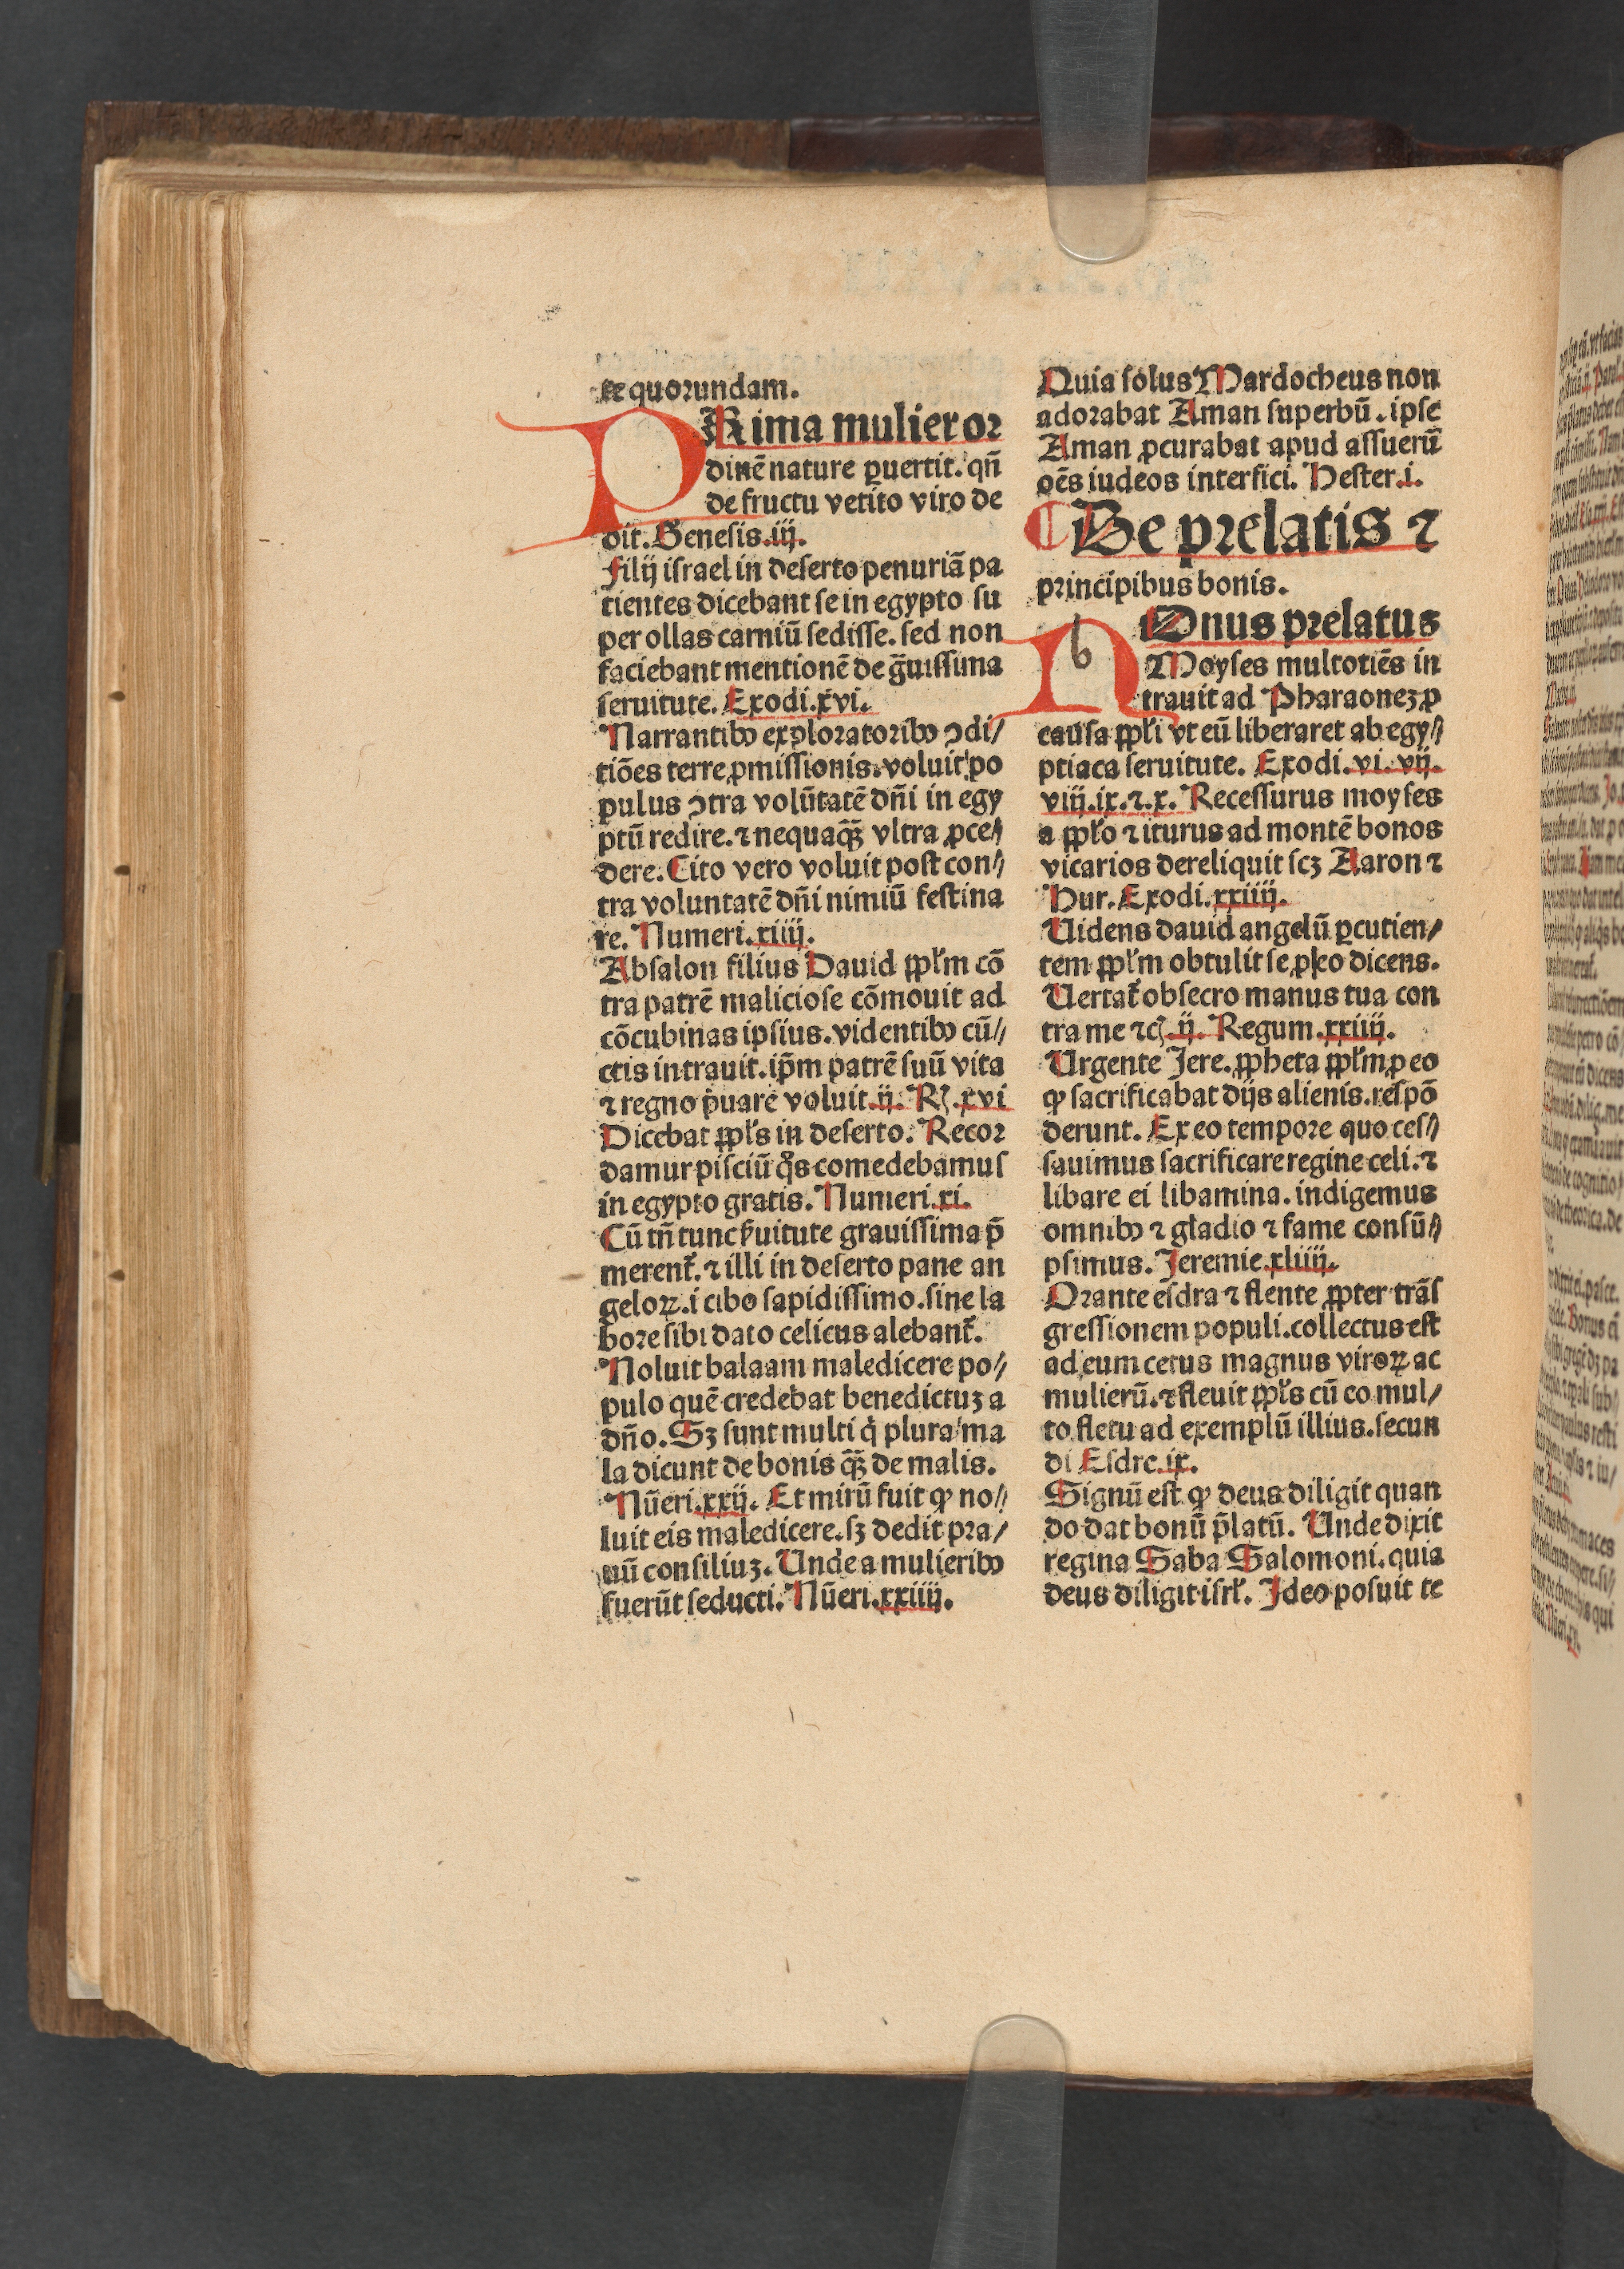 te quorundam.
PRima mulier or
dinē nature ꝑuertit. qn̄
de fructu vetito viro de
dit. Genesis.iij.
Filij israel in deserto penuriā pa
tientes dicebant se in egypto su
per ollas carniū sedisse. sed non
faciebant mentionē de g̃uissima
seruitute. Exodi.xvi.
Narrantibꝰ exploratoribꝰ ↄdi/
tiōes terre ꝓmissionis. voluit po
pulus ↄtra volūtatē dn̄i in egy
ptū redire. ⁊ nequaq̄ꝫ vltra ꝓce//
dere. Cito vero voluit post con//
tra voluntatē dn̄i nimiū festina
re. Numeri.xiiij.
Absalon filius Dauid ppl̕m cō
tra patrē maliciose cōmouit ad
cōcubinas ipsius. videntibꝰ cū//
ctis intrauit. ip̄m patrē suū vita
⁊ regno p̍uare voluit.ij. Rꝭ.xvi
Dicebat ppl̕s in deserto. Recor
damur pisciū q̊s comedebamus
in egypto gratis. Numeri.xi.
Cū tn̄ tunc ẜuitute grauissima p̄
merent̕. ⁊ illi in deserto pane an
geloꝝ. i cibo sapidissimo. sine la
bore sibi dato celicus alebant̕.
Noluit balaam maledicere po//
pulo quē credebat benedictuꝫ a
dn̄o. Sꝫ sunt multi q̍ plura ma
la dicunt de bonis q̄ꝫ de malis.
Nūeri.xxij. Et mirū fuit ꝙ no//
luit eis maledicere. sꝫ dedit pra/
uū consiliuꝫ. Unde a mulieribꝰ
fuerūt seducti. Nūeri.xxiiij.
Quia solus Mardocheus non
adorabat Aman superbū. ipse
Aman ꝓcurabat apud assuerū
oēs iudeos interfici. Hester.i.
¶ De prelatis ⁊
principibus bonis.
b
BOnus prelatus
Moyses multotiēs in
trauit ad Pharaoneꝫ ꝓ
causa ppl̕i vt eū liberaret ab egy//
ptiaca seruitute. Exodi.vi.vij.
viij.ix.⁊.x. Recessurus moyses
a ppl̕o ⁊ iturus ad montē bonos
vicarios dereliquit scꝫ Aaron ⁊
Hur. Exodi.xxiiij.
Uidens dauid angelū ꝑcutien/
tem ppl̕m obtulit se ꝓ eo dicens.
Uertat̕ obsecro manus tua con
tra me ⁊cꝭ.ij. Regum.xxiiij.
Urgente Jere. ꝓpheta ppl̕m ꝓ eo
ꝙ sacrificabat dijs alienis. respō
derunt. Ex eo tempore quo ces//
sauimus sacrificare regine celi. ⁊
libare ei libamina. indigemus
omnibꝰ ⁊ gladio ⁊ fame consū//
psimus. Jeremie.xliiij.
Orante esdra ⁊ flente ꝓpter trās
gressionem populi. collectus est
ad eum cetus magnus viroꝝ ac
mulierū. ⁊ fleuit ppl̕s cū eo mul/
to fletu ad exemplū illius. secun
di Esdre.ix.
Signū est ꝙ deus diligit quan
do dat bonū p̄latū. Unde dixit
regina Saba Salomoni. quia
deus diligit isrl̕. Ideo posuit te